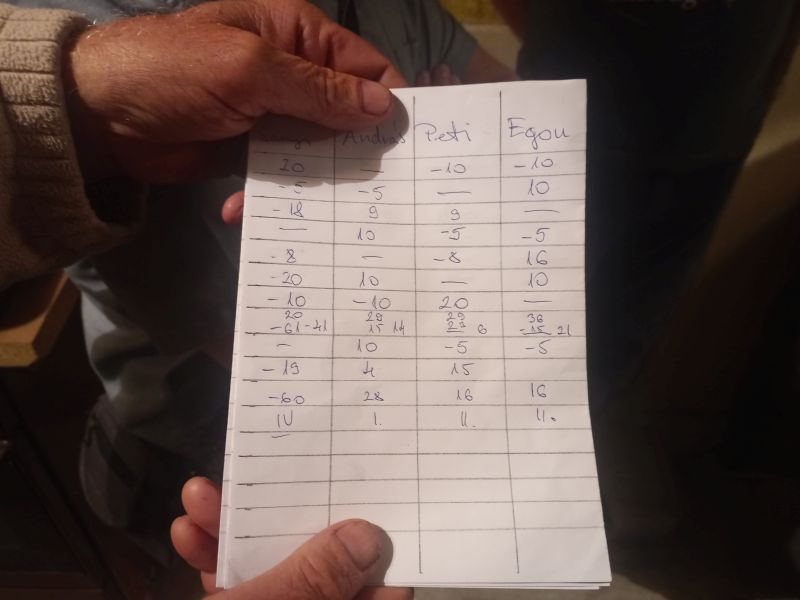 András Peti Egon
20 — -10 -10
-5 -5 — 10
-18 9 9 —
— 10 -5 -5
-8 — -8 16
-20 10 — 10
-10 -10 20 —
20 29 29 36
-61 -41 15 14 23 6 -15 21
- 10 -5 -5
-19 4 15
-60 28 16 16
IV I. II. II.